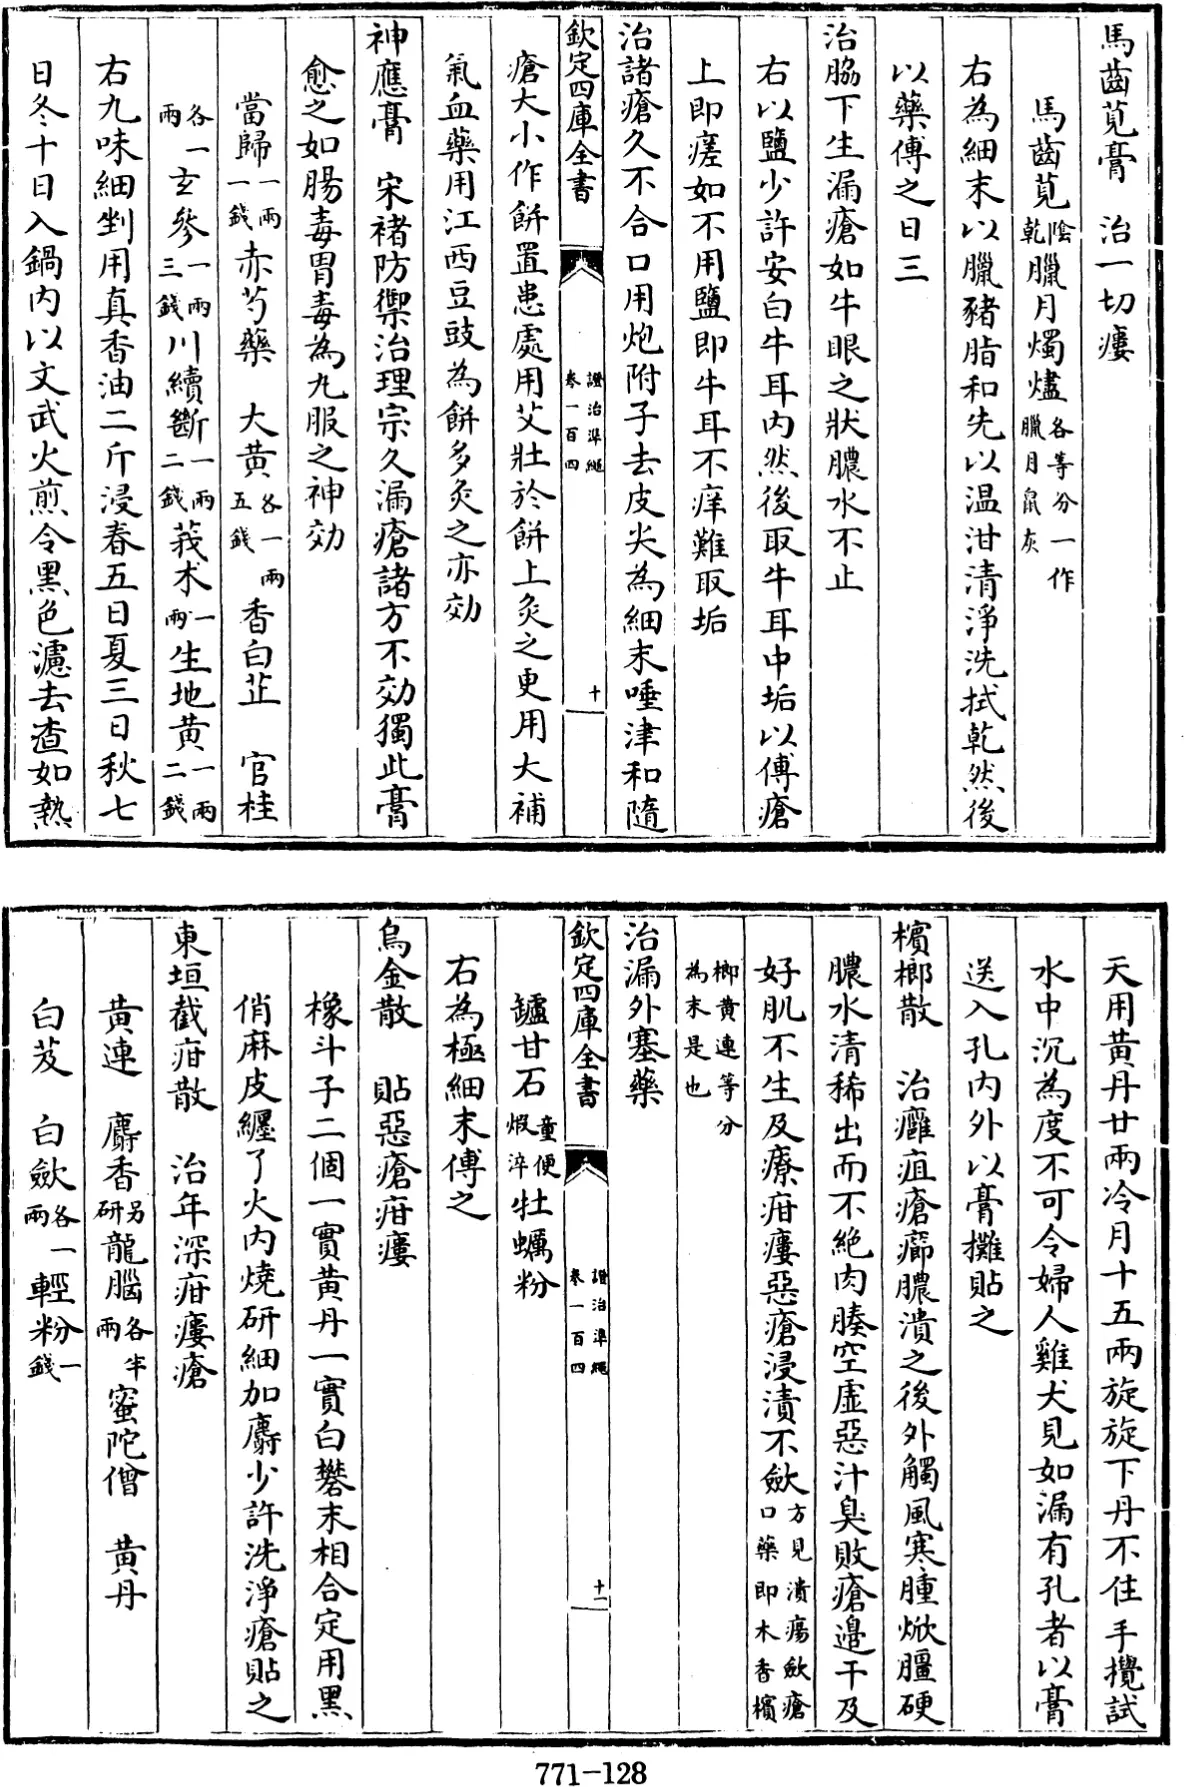 馬齒莧膏　治一切瘻
馬齒莧陰乾臘月燭燼各等分一作臘月鼠灰
右為細末以臘豬脂和先以温泔清淨洗拭乾然後
以藥傅之日三
治脇下生漏瘡如牛眼之狀膿水不止
右以鹽少許安白牛耳内然後取牛耳中垢以傅瘡
上即瘥如不用鹽即牛耳不痒難取垢
治諸瘡久不合口用炮附子去皮尖為細末唾津和隨
欽定四庫全書　證治準繩卷一百四　十
瘡大小作餅置患處用艾壯於餅上灸之更用大補
氣血藥用江西豆豉為餅多灸之亦効
神應膏　宋褚防禦治理宗久漏瘡諸方不効獨此膏
愈之如腸毒胃毒為九服之神効
當歸一兩一錢赤芍藥　大黄各一兩五錢香白芷　官桂
各一兩玄參一兩三錢川續斷一兩二錢莪朮一兩生地黄一兩二錢
右九味細剉用真香油二斤浸春五日夏三日秋七
日冬十日入鍋内以文武火煎令黒色濾去渣如熱
天用黄丹廿兩冷月十五兩旋旋下丹不住手攪試
水中沉為度不可令婦人雞犬見如漏有孔者以膏
送入孔内外以膏攤貼之
檳榔散　治癰疽瘡癤膿潰之後外觸風寒腫焮腽硬
膿水清稀出而不絶肉腠空虛惡汁臭敗瘡邉干及
好肌不生及療疳瘻惡瘡浸漬不斂方見潰瘍斂瘡口藥即木香檳
榔黄連等分為末是也
治漏外塞藥
欽定四庫全書　證治準繩卷一百四　十一
鑪甘石童便煆淬牡蠣粉
右為極細末傅之
烏金散　貼惡瘡疳瘻
橡斗子二個一實黄丹一實白礬末相合定用黒
俏麻皮纒了火内燒研細加麝少許洗淨瘡貼之
東垣截疳散　治年深疳瘻瘡
黄連　麝香另研龍腦各半兩蜜陀僧　黄丹
白芨　白斂各一兩輕粉一錢
771-128